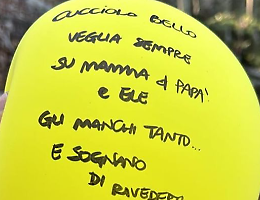 CUCCIOLO BELLO
VEGLIA SEMPRE
SU MAMMA & PAPA'
e ELE
GLI MANCHI TANTO...
E SOGNANO
DI RIVEDERTI